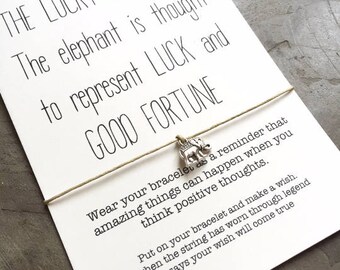 THE LUCKY
The elephant is thought
to represent LUCK and
GOOD FORTUNE
Wear your bracelet as a reminder that
amazing things can happen when you
think positive thoughts.
Put on your bracelet and make a wish.
when the string has worn through legend
says your wish will come true